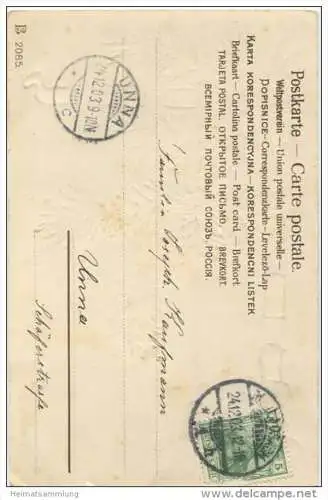 Postkarte — Carte postale.
Weltpostverein — Union postale universelle —
DOPISNICE - Correspondenzkarte - Levelező-Lap
KARTA KORESPONDENCYJNA — KORESPONDENCNI LISTEK
Briefkaart — Cartolina postale — Post card — Brefkort
TARJETA POSTAL. ОТКРЫТОЕ ПИСЬМО. BREVKORT.
ВСЕМІРНЫЙ ПОЧТОВЫЙ СОЮЗЪ. РОССІЯ.
Familie Joseph Kaufmann
Unna
Schäferstrasse
B 2085.
UNNA
24.12.03.9-10N
C
24.12.03
5
www.heimatsammlung.de